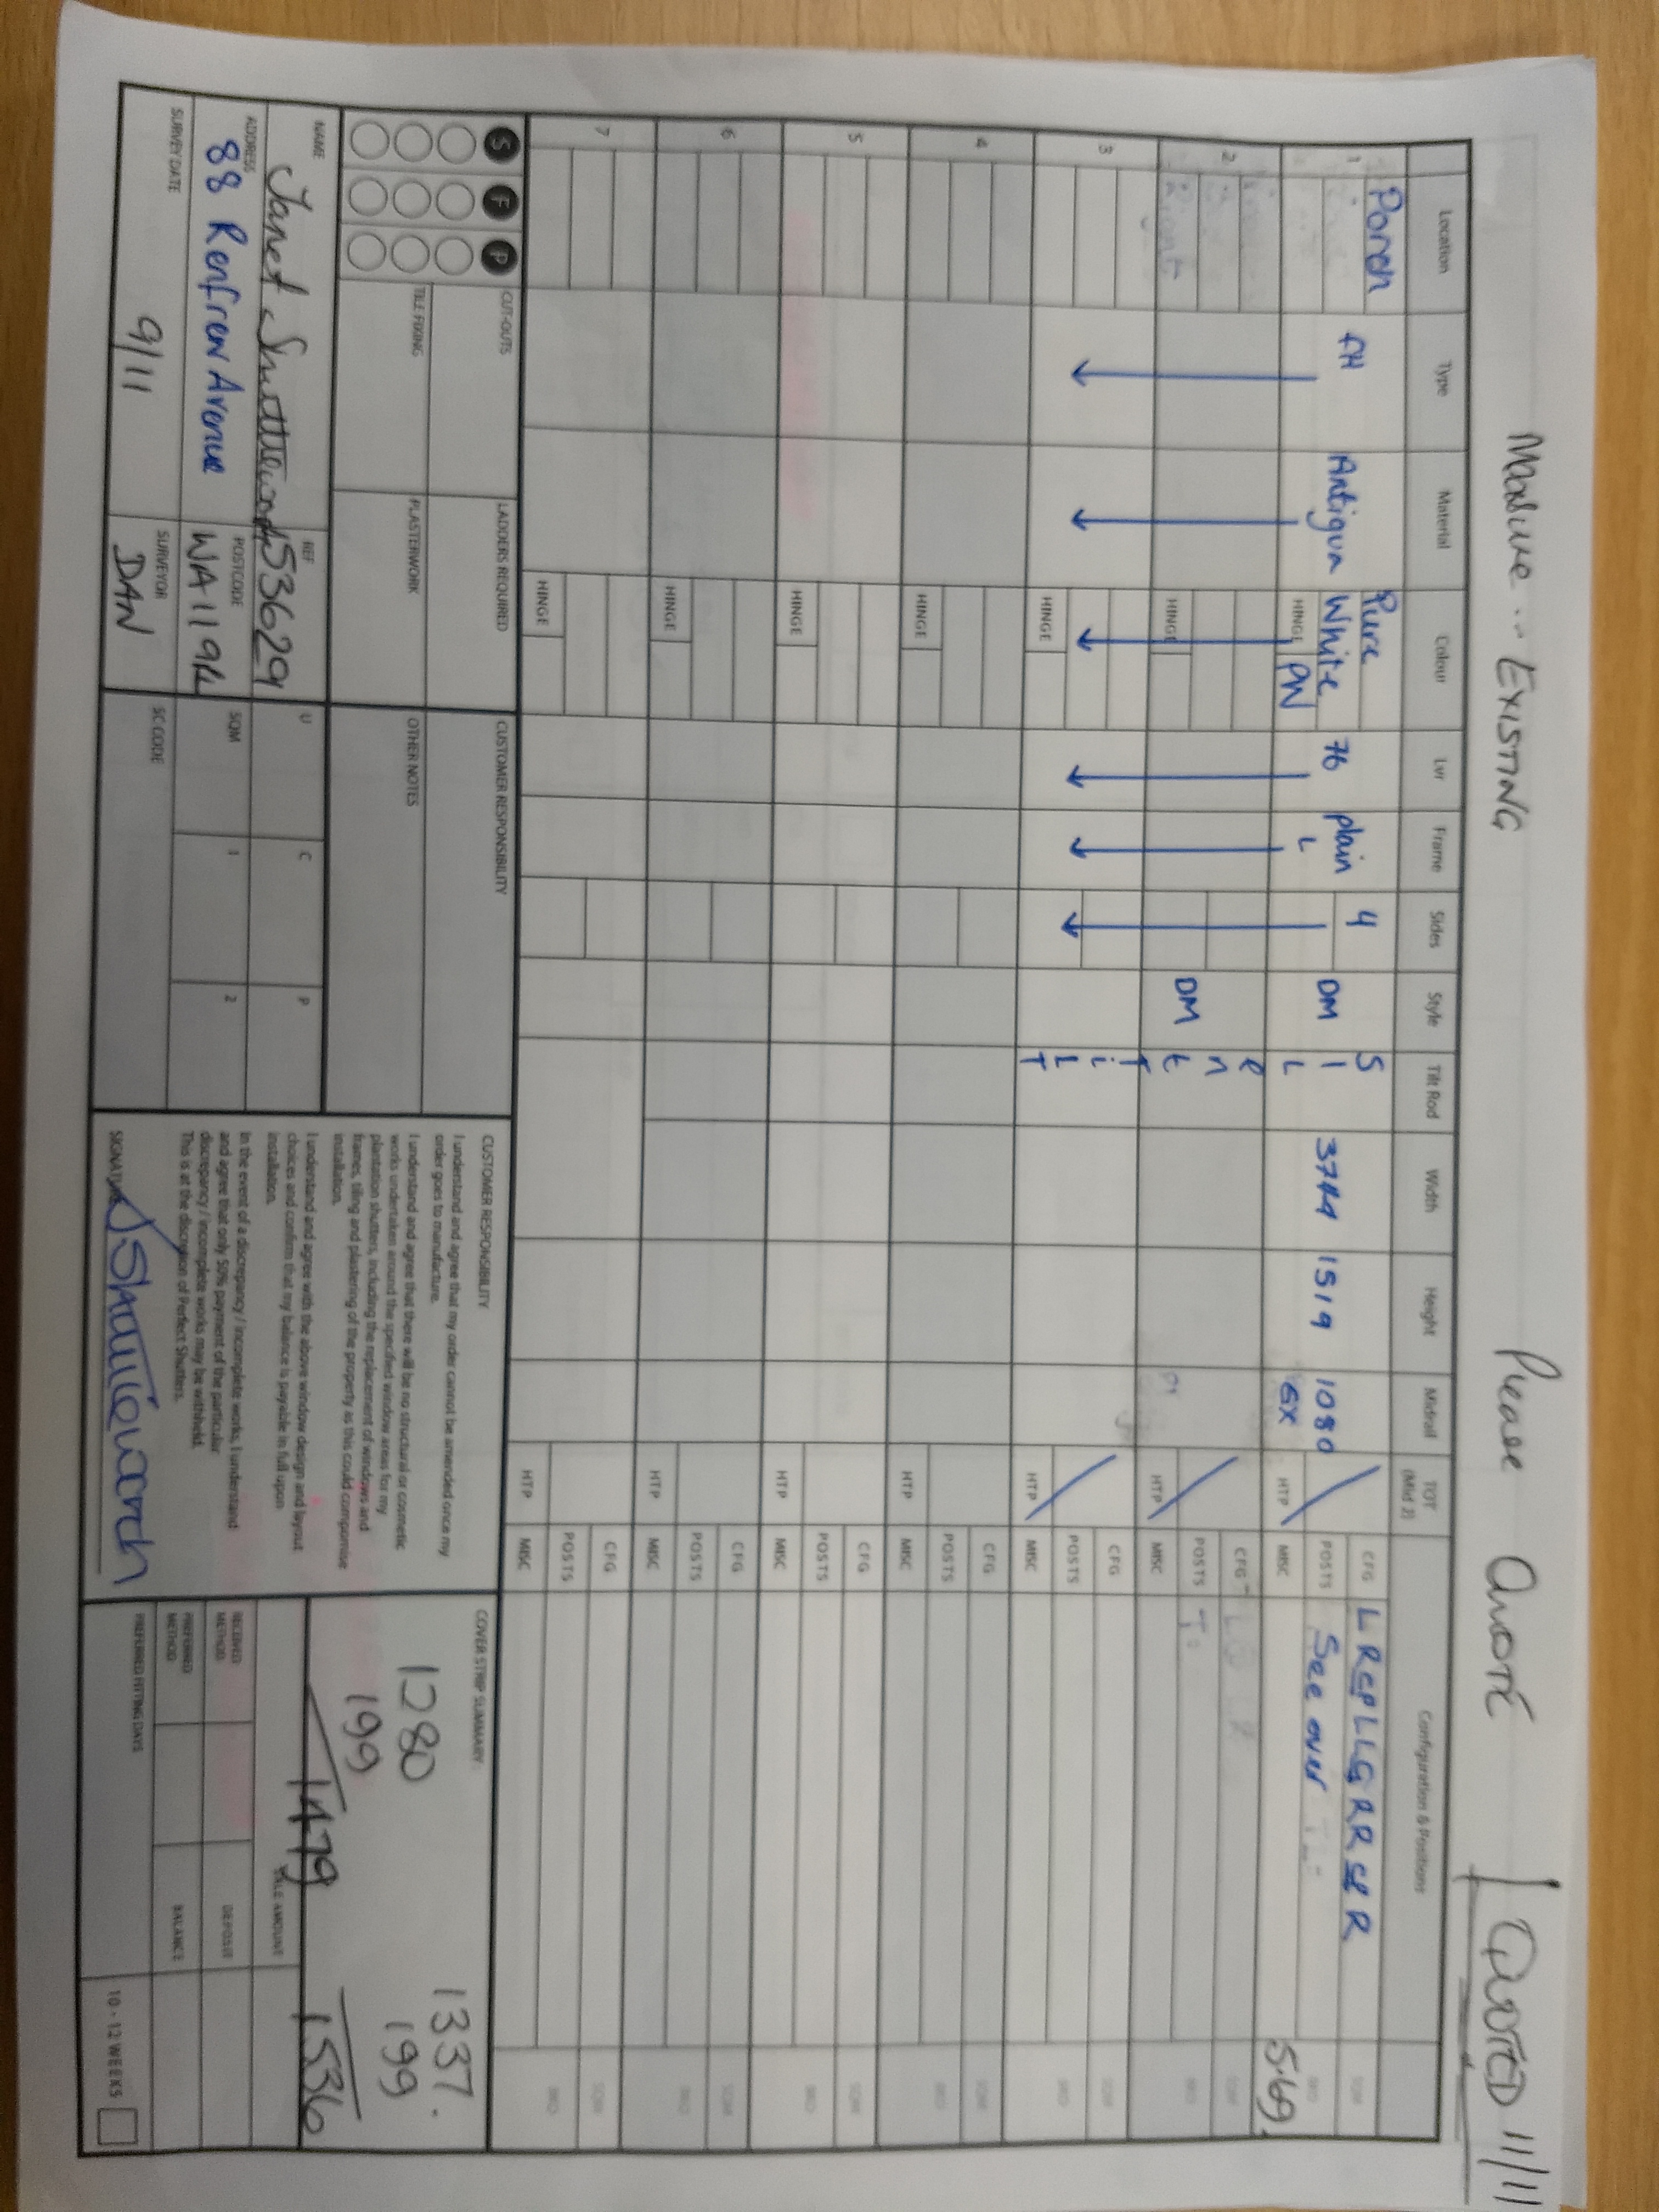 Measure - Existing Please Quote QUOTED 11/11
Location Type Material Colour Lvr Frame Sides Style Tilt Rod Width Height Midrail TOT (Mid 2) Configuration & Positions
1 Porch FH Antigua Pure White 76 plain L 4 DM 1519 1080 GX
HINGE PW
HTP
CFG
POSTS See over
MISC
SQM
5.69
2 HINGE DM HTP
CFG
POSTS
MISC
SQM
3 HINGE HTP
CFG
POSTS
MISC
SQM
Silent Tilt
4 HINGE HTP
CFG
POSTS
MISC
SQM
5 HINGE HTP
CFG
POSTS
MISC
SQM
6 HINGE HTP
CFG
POSTS
MISC
SQM
7 HINGE HTP
CFG
POSTS
MISC
SQM
S F P
CUT-OUTS
LADDERS REQUIRED
CUSTOMER RESPONSIBILITY
TILE FIXING
PLASTERWORK
OTHER NOTES
NAME Janet
REF 536629
U C P
ADDRESS 88 Renfrew Avenue
POSTCODE
SQM 1 2
SURVEY DATE 9/11
SURVEYOR DAN
SC CODE
CUSTOMER RESPONSIBILITY
I understand and agree that my order cannot be amended once my
order goes to manufacture.
I understand and agree that there will be no structural or cosmetic
works undertaken around the specified window areas for my
plantation shutters, including the replacement of windows and
frames, tiling and plastering of the property as this could compromise
installation.
I understand and agree with the above window design and layout
choices and confirm that my balance is payable in full upon
installation.
In the event of a discrepancy / incomplete works, I understand
and agree that only 50% payment of the particular
discrepancy / incomplete works may be withheld.
This is at the discretion of Perfect Shutters.
SIGNATURE
COVER STRIP SUMMARY
1280
199
1479
1337.
199
1536
SALE AMOUNT
RECEIVED METHOD
DEPOSIT
PREFERRED METHOD
BALANCE
PREFERRED FITTING DAYS
10 - 12 WEEKS